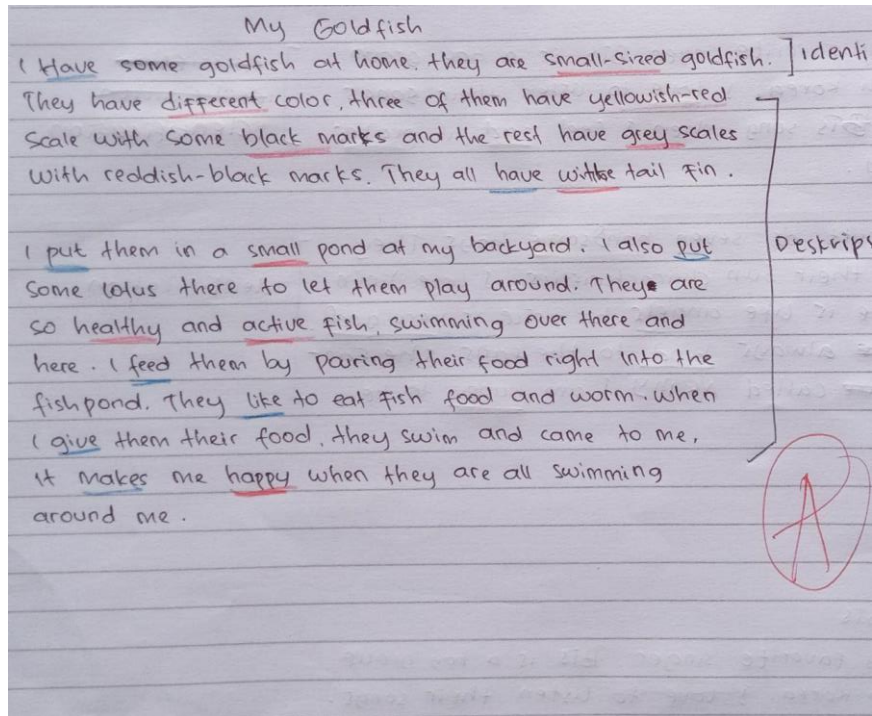 My Goldfish
I Have some goldfish at home. they are small-sized goldfish. ] identi
They have different color, three of them have yellowish-red
Scale with some black marks and the rest have grey scales
with reddish-black marks. They all have tail fin.
I put them in a small pond at my backyard. I also put
Deskrips
some lotus there to let them play around. They are
so healthy and active fish, swimming over there and
here. I feed them by pouring their food right into the
fishpond. They like to eat fish food and worm. when
I give them their food, they swim and came to me,
it makes me happy when they are all swimming
around me.
A